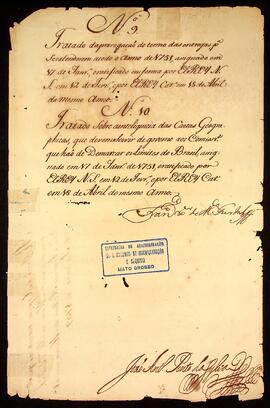 N.º 9
Tratado da prorrogação do termo das entregas p.ª
desde o Anno de 1751, asignado em
17 de Jan.º, e ratificado em forma por ElREY N.
S. em 12 de Fev.º, e por ElREY Cat.º em 18 de Abril
do mesmo Anno.
N.º 10
Tratado sobre a intelligencia das Cartas Geogra-
phicas que devem servir de governo aos Comisar.os
que haõ de Demarcar os Limites do Brasil, asig-
nado em 17 de Jan.º de 1751 e ratificado por
ElREY N. S. em 12 de Fev.º, e por ElREY Cat.º
em 18 de Abril do mesmo Anno.
de M.ça Furtado
DE
E ARQUIVO
MATO GROSSO
João Pinto da Silva